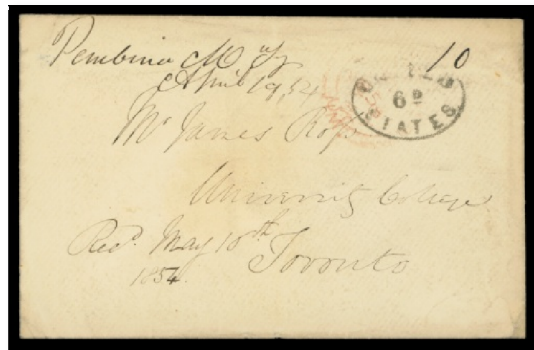 Pembina M. Ty
April 19, 54
10
UNITED
6D
STATES
Mr James Ross
University College
Toronto
Recd. May 10th
1854.